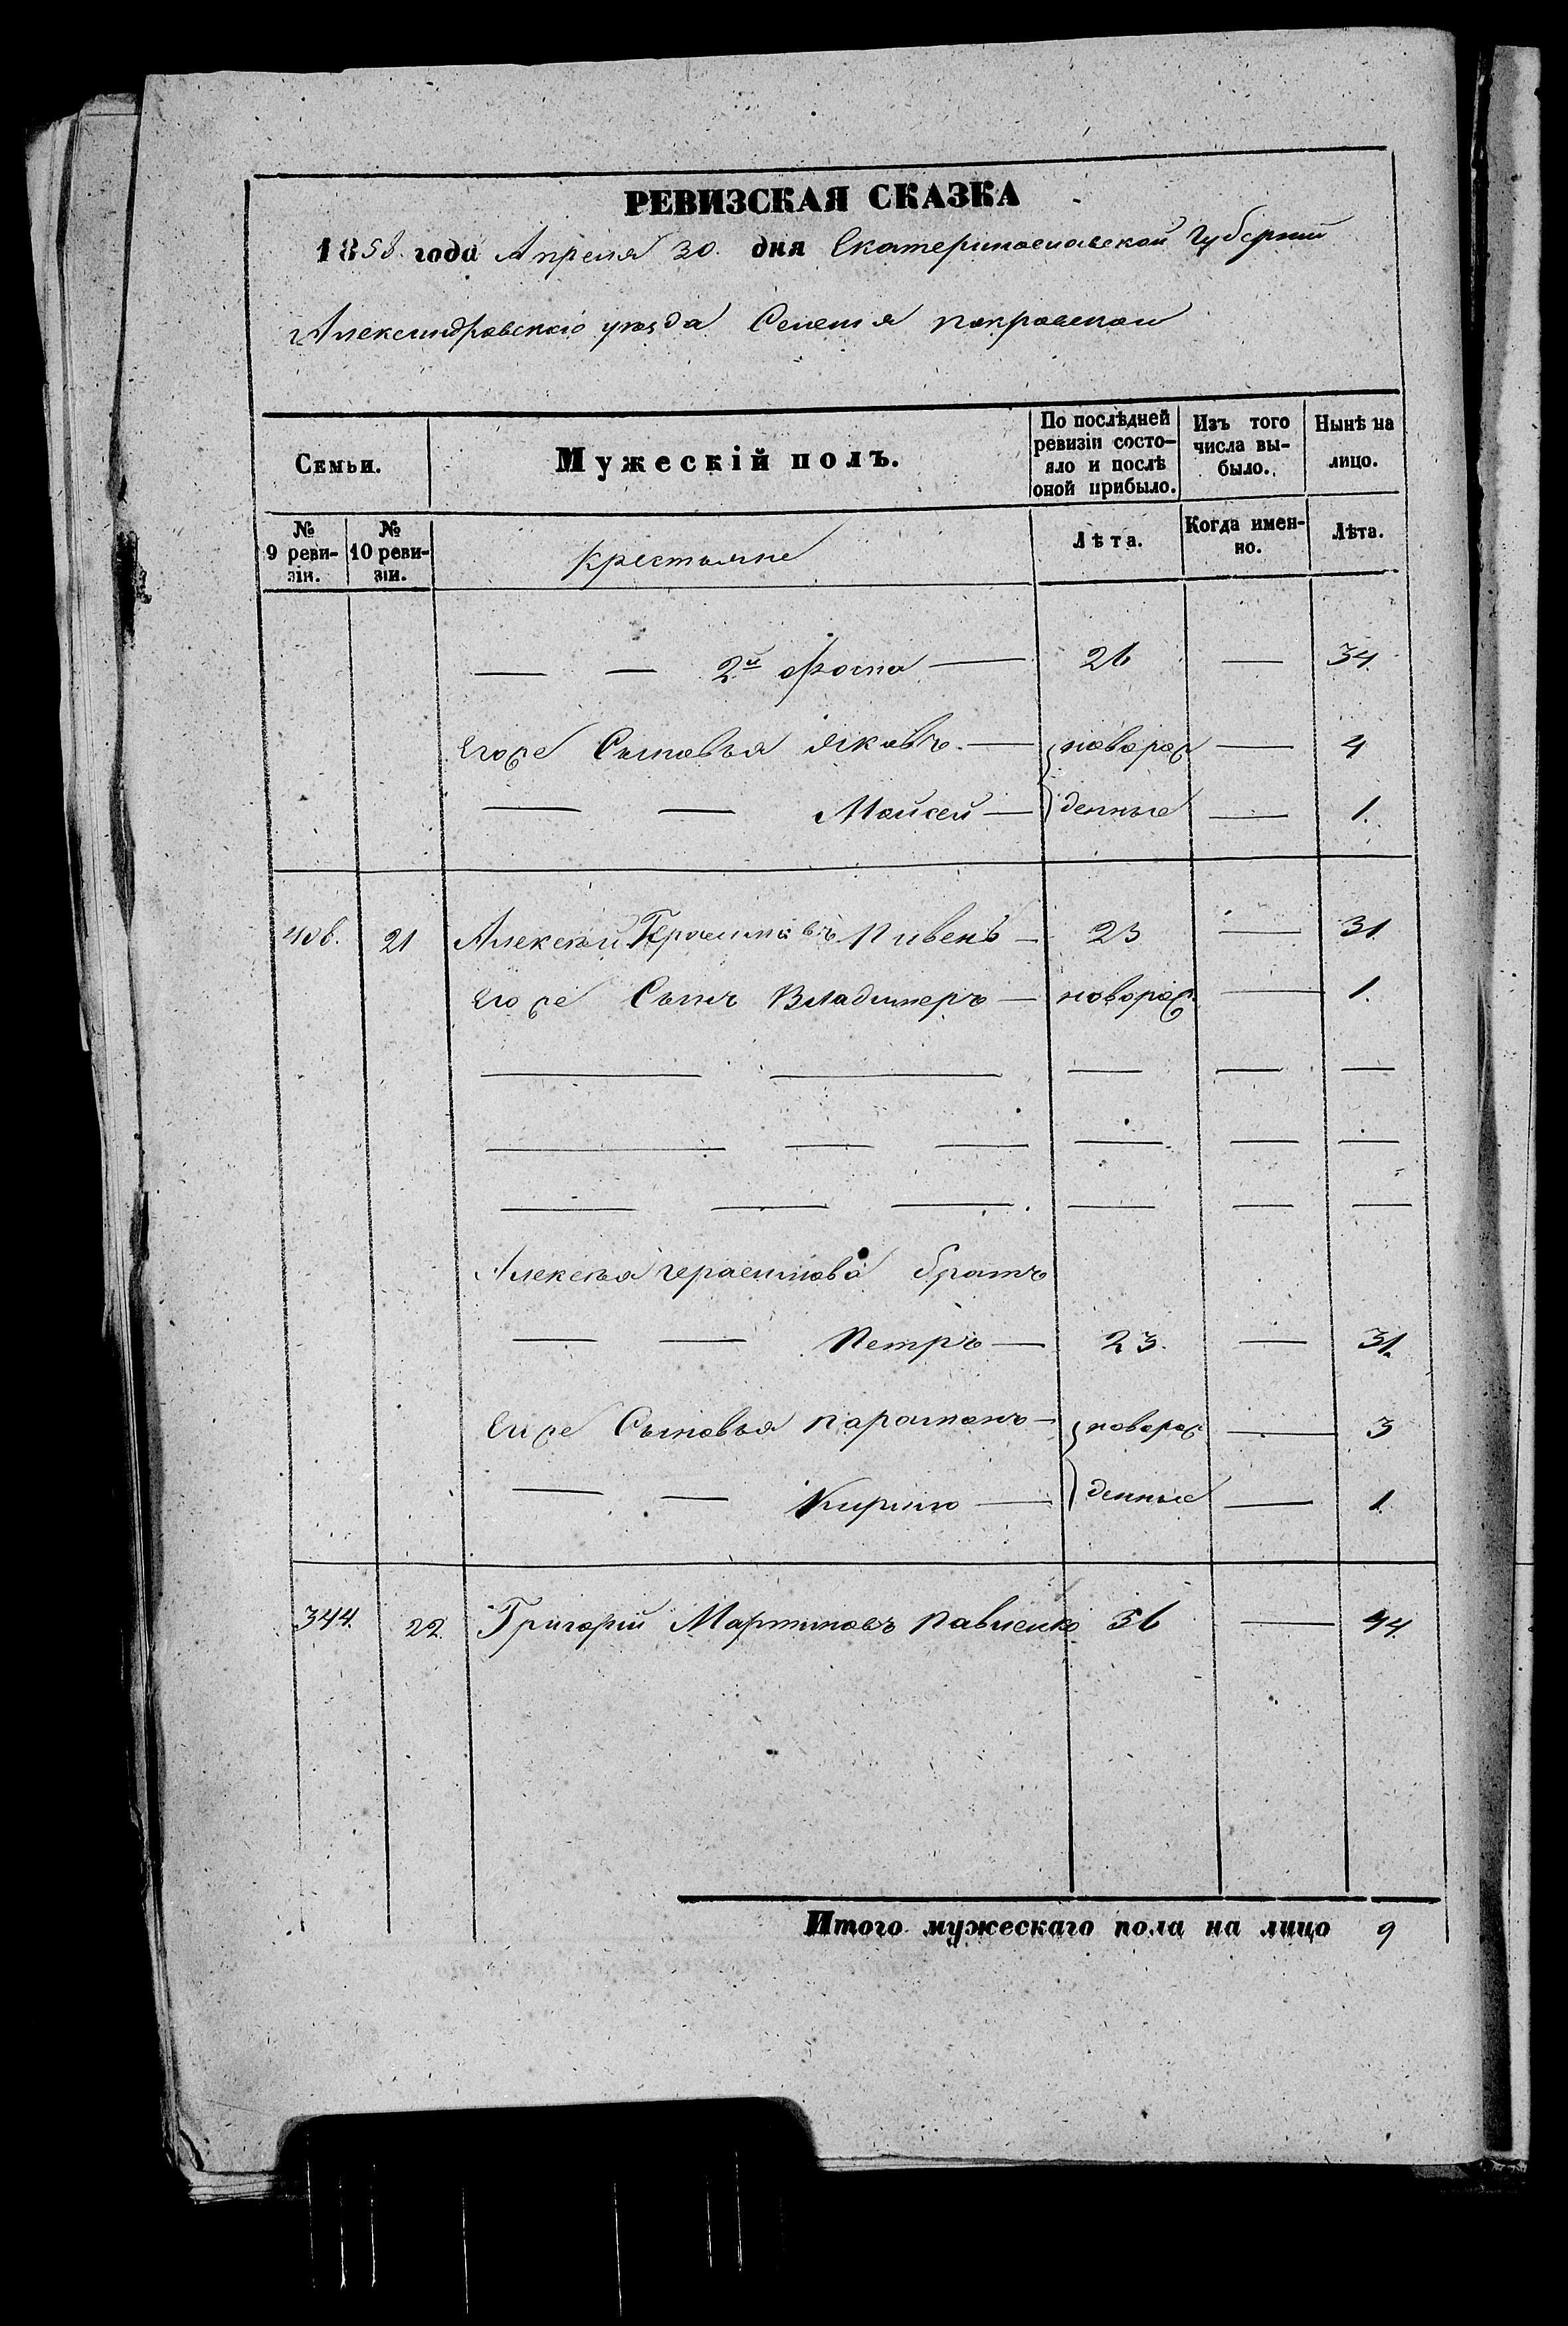 РЕВИЗСКАЯ СКАЗКА
1858. года Апреля 30. дня Екатеринославской Губернии
Александровского уезда Селения покровского
Семьи.
Мужескій полъ.
По послѣдней ревизіи состояло и послѣ оной прибыло.
Изъ того числа выбыло.
Нынѣ на лицо.
№ 9 ревизіи.
№ 10 ревизіи.
крестьяне
Лѣта.
Когда именно.
Лѣта.
— — 2й Фома — 26 — 34.
Егоже Сыновья Яковъ. — новорож — 4
— — Моисей — денные — 1.
406. 21 Алексѣй Герасимовъ Пивень — 23 — 31.
Егоже Сынъ Владимеръ — новорож. — 1.
— — — — —
— — — — — —
— — — — — —
Алексѣя герасимова братъ
— — Петръ — 23. — 31.
Егоже Сыновья парамонъ — новорож — 3
— — Кирило — денные — 1
344. 22. Григорій Мартиновъ павленко 36 — 44.
Итого мужескаго пола на лицо 9